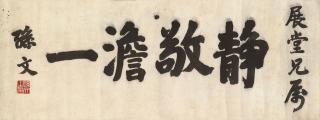 展堂兄属
静敬澹一
孫文